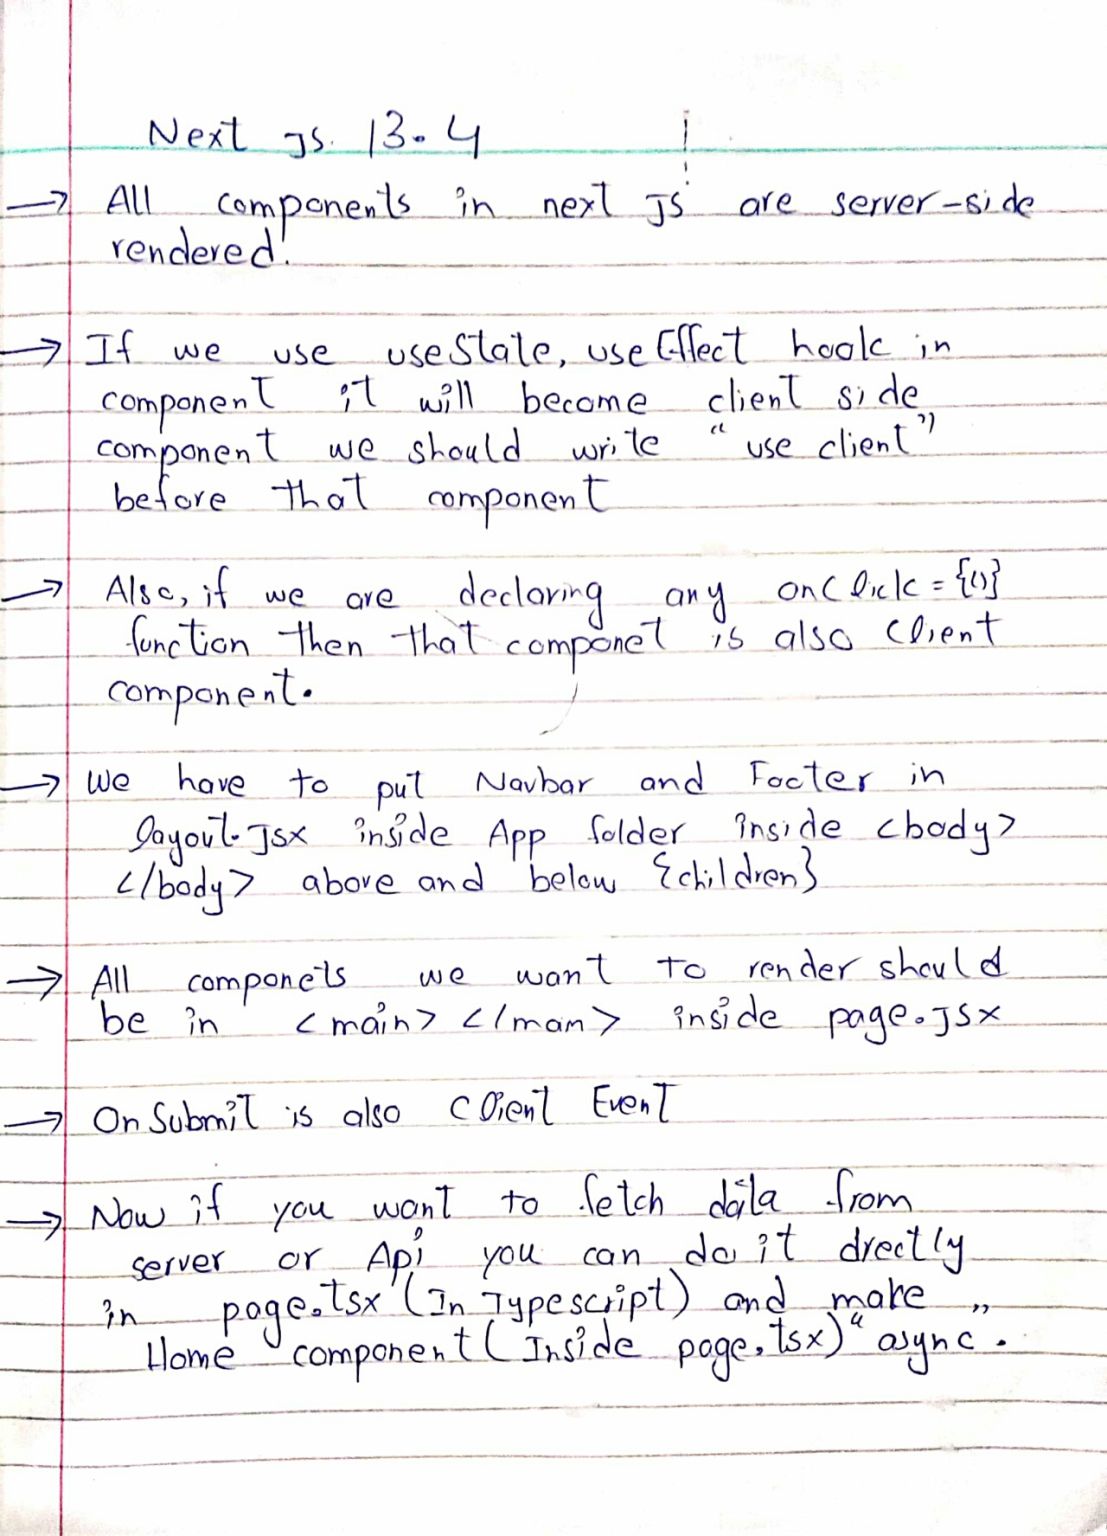 Next Js. 13.4
→ All components in next Js are server-side
rendered.
→ If we use useState, useEffect hook in
component it will become client side
component we should write "use client"
before that component
→ Also, if we are declaring any onClick = {()}
function then that componet is also client
component.
→ We have to put Navbar and Footer in
layout.Jsx inside App folder inside <body>
</body> above and below {children}
→ All componets we want to render should
be in <main> </man> inside page.Jsx
→ OnSubmit is also Client Event
→ Now if you want to fetch data from
server or Api you can do it drectly
in page.tsx (In Typescript) and make
Home component (Inside page.tsx) "async".